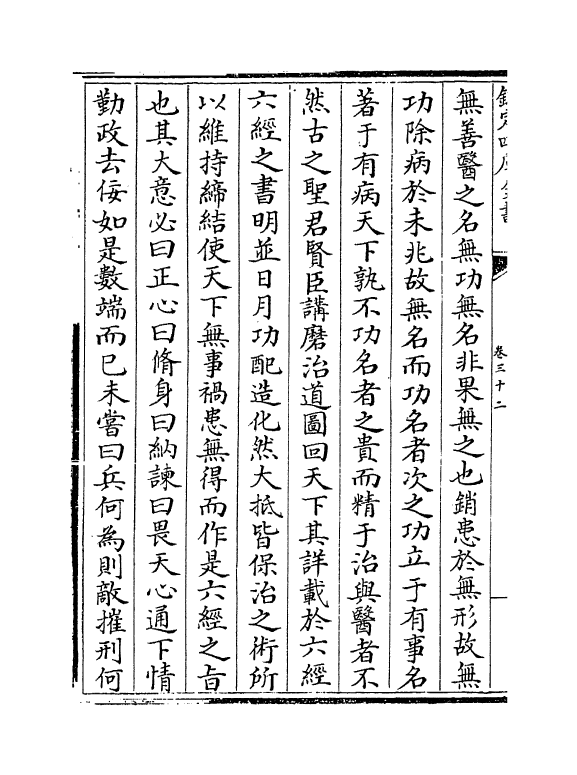 欽定四庫全書
卷三十二
無善醫之名無功無名非果無之也銷患於無形故無
功除病於未兆故無名而功名者次之功立于有事名
著于有病天下孰不功名者之貴而精于治與醫者不
然古之聖君賢臣講磨治道圖回天下其詳載於六經
六經之書明並日月功配造化然大抵皆保治之術所
以維持締結使天下無事禍患無得而作是六經之旨
也其大意必曰正心曰脩身曰納諫曰畏天心通下情
勤政去佞如是數端而已未嘗曰兵何為則敵摧刑何